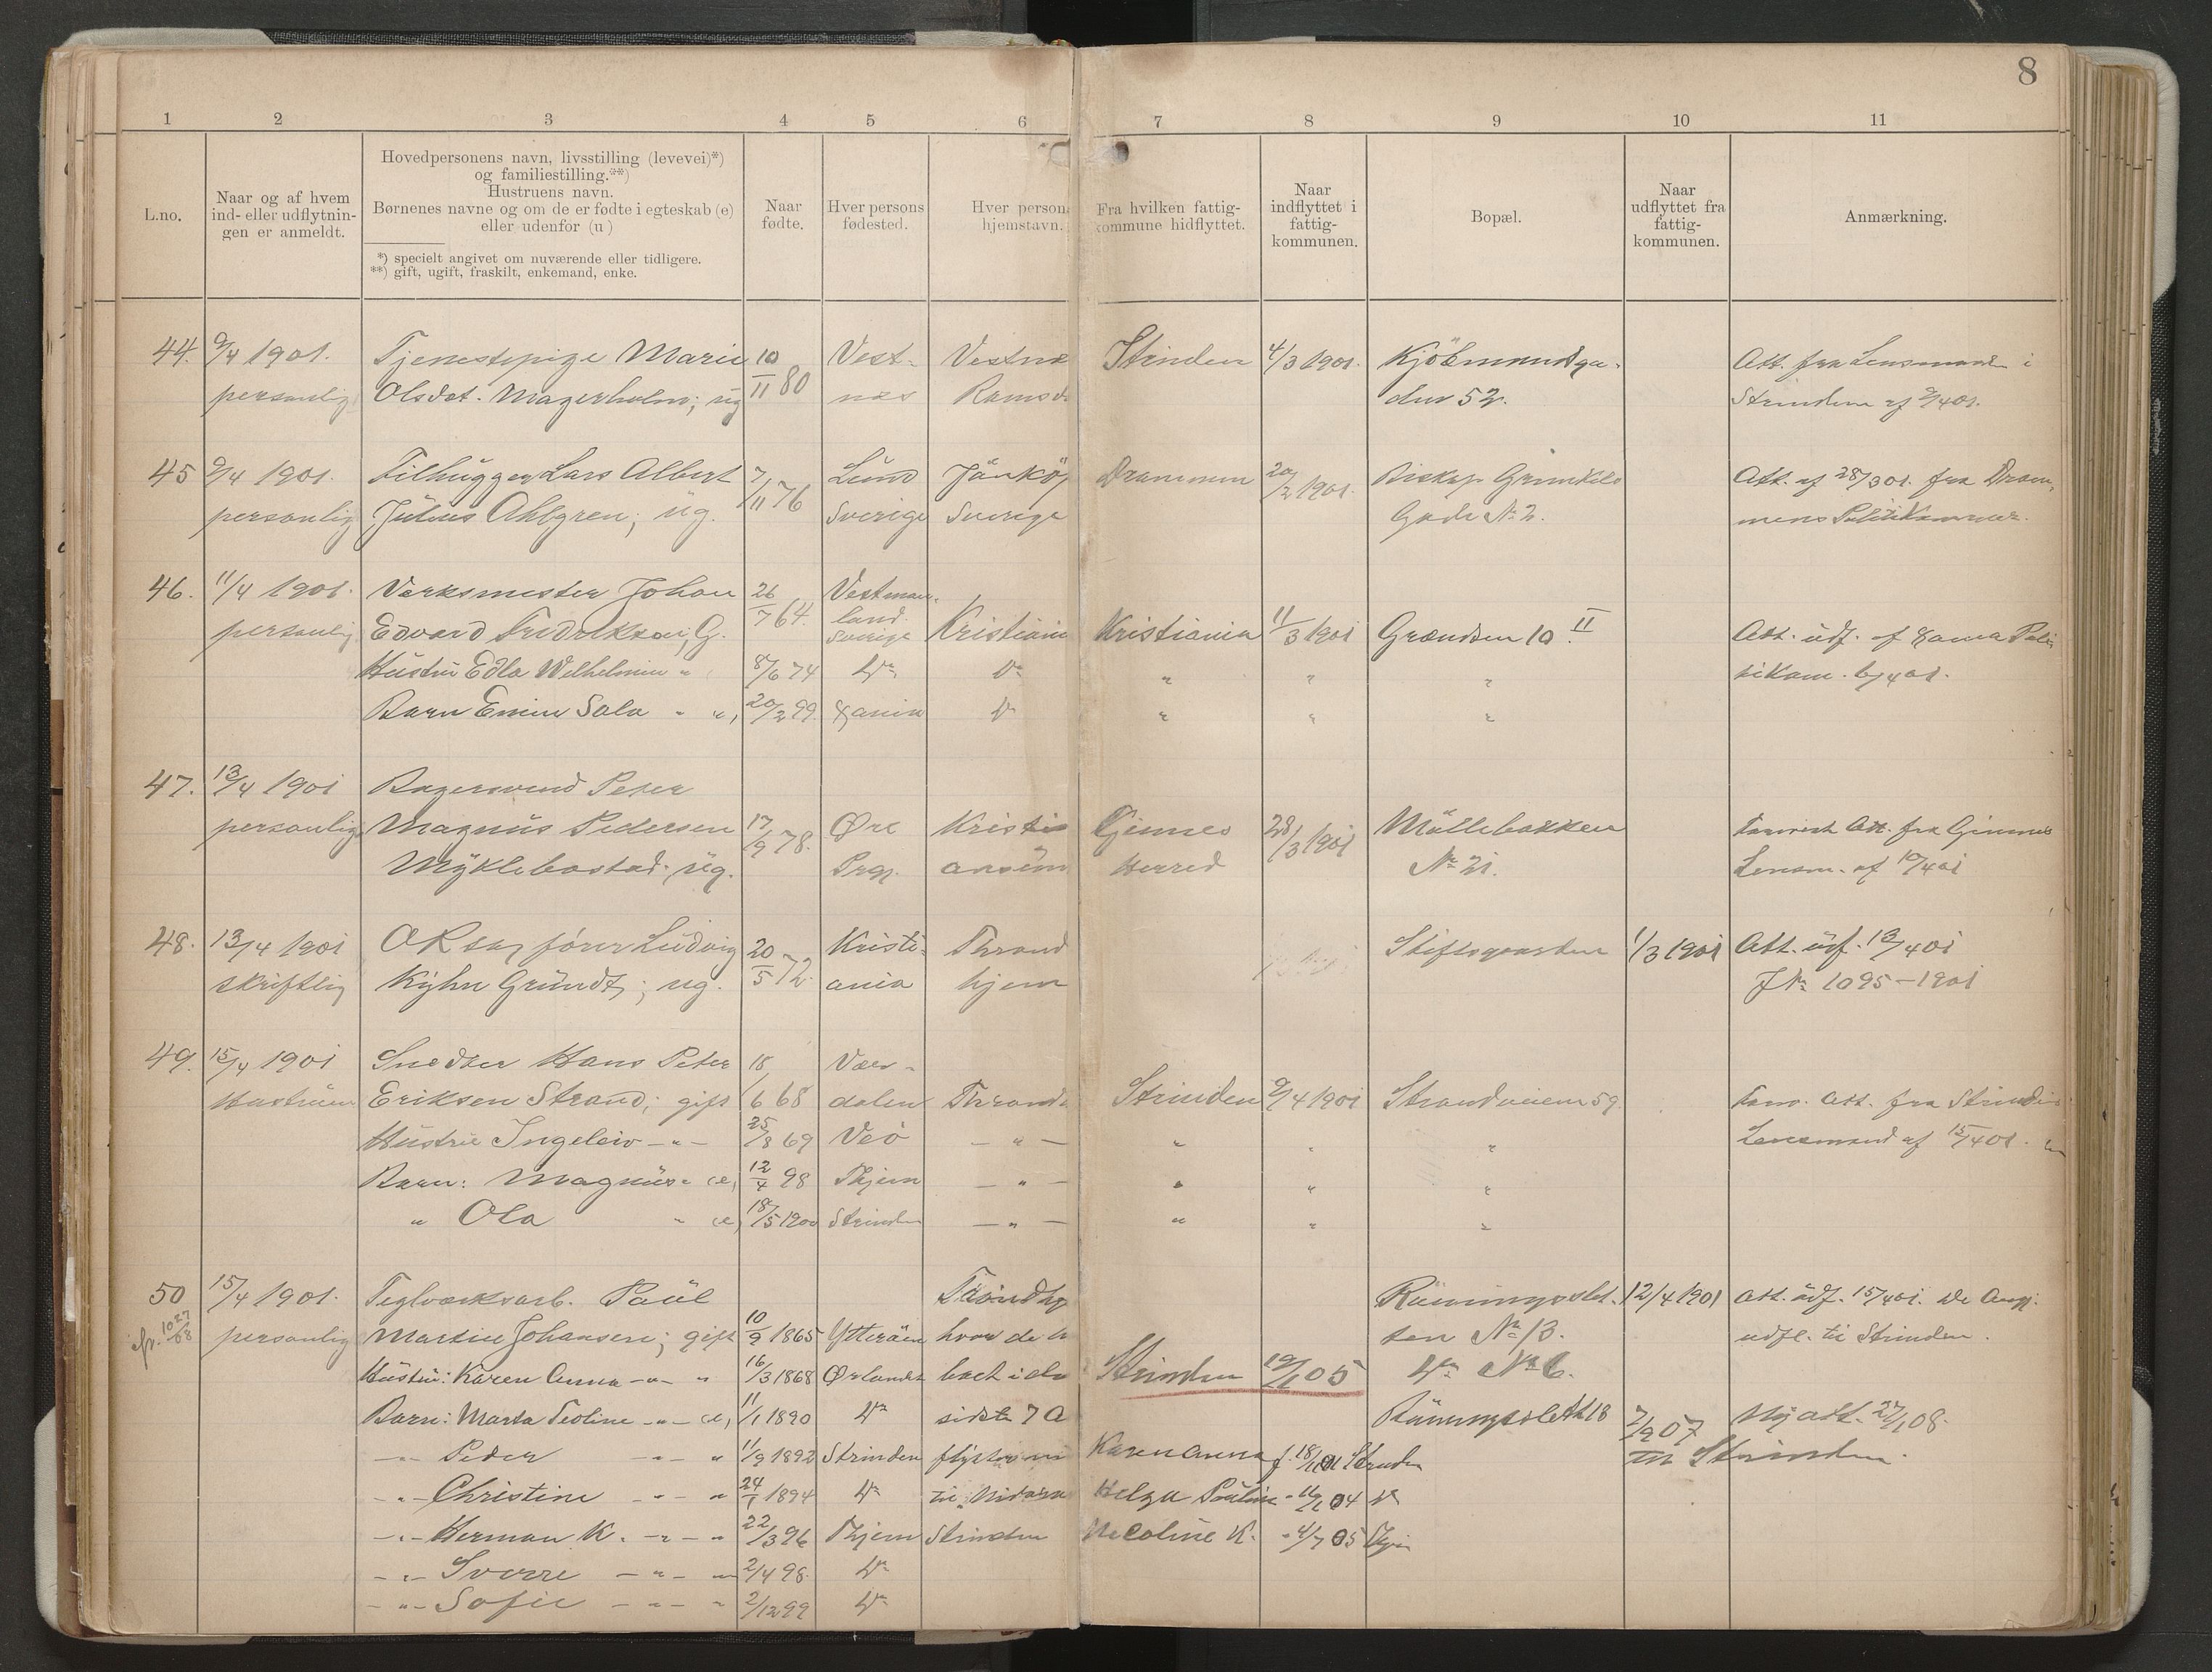 8
1 2 3 4 5 6 7 8 9 10 11
L.no.
Naar og af hvem
ind- eller udflytnin-
gen er anmeldt.
Hovedpersonens navn, livsstilling (levevei)*)
og familiestilling.**)
Hustruens navn.
Børnenes navne og om de er fødte i egteskab (e)
eller udenfor (u)
*) specielt angivet om nuværende eller tidligere.
**) gift, ugift, fraskilt, enkemand, enke.
Naar
fødte.
Hver persons
fødested.
Hver person
hjemstavn.
Fra hvilken fattig-
kommune hidflyttet.
Naar
indflyttet i
fattig-
kommunen.
Bopæl.
Naar
udflyttet fra
fattig-
kommunen.
Anmærkning.
44. 9/4 1901. Tjenestepige Marie 10 Vest- Vestnæ Strinden 4/3 1901. Kjöbmandsga- Att. fra Lensmanden i
personlig Olsdat. Magerholm; ug 11 80 næs Romsd den 52. Strinden af 9/4 01.
45 9/4 1901. Filhugger Lars Albert 7/11 76 Lund Jönköp Drammen 20/2 1901. Biskop Grimkels Att. af 28/3 01. fra Dram-
personlig Julius Ahlgren; ug. Sverige Sverige Gade No 2. mens Politikammer.
46. 11/4 1901. Værksmester Johan 26/7 64. Vestman-
land
personlig Edvard Fredriksen; G. Sverige Kristiania Kristiania 11/3 1901 Grændsen 10 II Att. udf. af Xania Poli
Hustru Edla Wilhelmin " 8/6 74 Do Do " " " tikam. 6/4 01.
Barn Emin Sala " ", 20/2 99 Xania Do " " "
47. 13/4 1901 Bagersvend Peter
personlig Magnus Pedersen 17/9 78. Øre Kristi Gimnes 28/3 1901 Möllebakken Att. fra Gimnes
Myklebostad. ug. Prgj. ansun Herred No 21. Lensm. af 10/4 01
48. 13/4 1901 OR sagfører Ludvig 20 Kristi- Thrond Stiftsgaarden 1/3 1901 Att. udf. 13/4 01
skriftlig Kyhn Gründt; ug. 5 72. ania hjem J No 1095 - 1901
49. 15/4 1901 Snedker Hans Peter 18 Vær-
Hustruen Eriksen Strand; gift 6 68 dalen Throndh Strinden 9/4 1901 Strandveien 59 Att. fra Strinden
Hustru Ingeleiv - " - 25/8 69 Veö - " - " " " Lensmand af 15/4 01.
Barn: Magnus " (e) 12/4 98 Thjem - " - " " "
" Ola " (e) 18/5 1900 Strinden - " - " " "
50 15/4 1901. Teglværksarb. Paul Trondhj 12/4 1901 Att. udf. 15/4 01. De Angj.
personlig Martin Johansen; gift 10/9 1865 Ytteröen hvor de h ten No 13. udfl. til Strinden.
Hustru: Karen Anna - " - " 16/3 1868 Ørlandet boet i de Strinden 19/ 05 Do No 6.
Barn: Marta Teoline - " - (e) 11/1 1890 Do sidste 7 A 18 7/9 07 Ny att. 27/1 08.
- " - Peder - " - " 11/9 1892 Strinden flytter nu Karen Anna f. 18/11 01 Strinden til Strinden.
- " - Christine - " - " 24/1 1894 Do til Nidarø Helga Pauline " 04 Do
- " - Herman K. - " - " 22/3 96 Thjem Strinden Nicoline K. " 4/7 05 Thjem
- " - Sverre - " - " 2/4 98 Do
- " - Sofie - " - " 2/12 99 Do